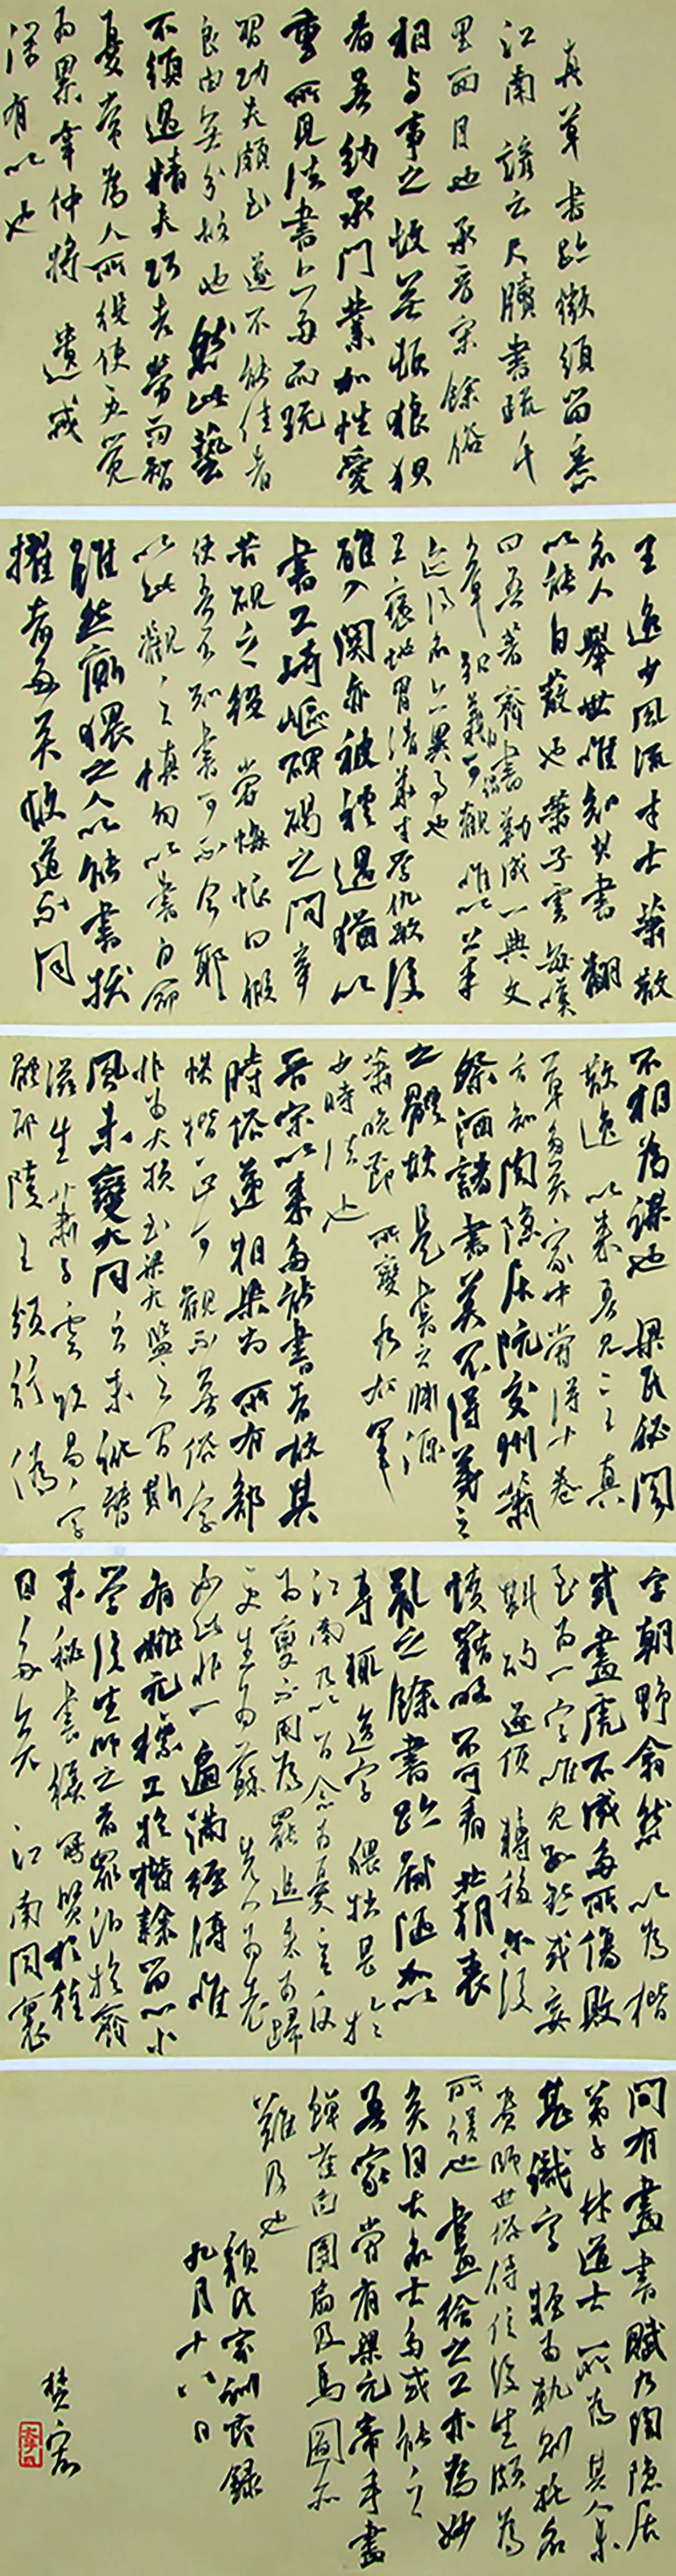 真草書跡微須留意
江南諺云尺牘書疏千
里面目也承晉宋餘俗
相與事之故無頓狼狽
者吾幼承門業加性愛
重所見法書亦多而玩
習功夫頗至遂不能佳者
良由無分故也然此藝
不須過精夫巧者勞而智
者憂常為人所役使更覺
為累韋仲將遺戒
深有以也
王逸少風流才士蕭散
名人舉世惟知其書翻
以能自蔽也蕭子雲每嘆
曰吾著齊書勒成一典文
章弘義自謂可觀唯以筆
迹得名亦異事也
王褒地胄清華才學優敏後
雖入關亦被禮遇猶以
書工崎嶇碑碣之間辛
苦硯之役嘗悔恨曰假
使吾不知書可不至今耶
以此觀之慎勿以書自命
雖然廝猥之人以能書拔
擢者多矣故道不同
不相為謀也梁氏秘閣
散逸以來吾見二王真
草多矣家中嘗得十卷
方知陶隱居阮交州蕭
祭酒諸書莫不得羲之
之體故是書之淵源
蕭晚節所變右軍
少時法也
晉宋以來多能書者故其
時俗遞相染為所有部
帙楷正可觀不無俗字
非為大損至梁天監之間斯
風未變大同之末訛替
滋生蕭子雲改易字
體邵陵王頗行偽
字朝野翕然以為楷
式畫虎不成多所傷敗
至為一字唯見數點或妄
斟酌遂便轉移爾後
墳籍略不可看北朝喪
亂之餘書跡鄙陋加以
專輒造字猥拙甚於
江南乃以百念為憂言反
為變不用為罷追來為歸
更生為蘇先人為老
如此非一遍滿經傳唯
有姚元標工於楷隸留心小
學後生師之者眾洎於齊
末秘書繕寫賢於往
日多矣江南閭里
間有畫書賦乃陶隱居
弟子杜道士所為其人未
甚識字輕為軌則托名
貴師世俗傳信後生頗為
所誤也畫繪之工亦為妙
矣自古名士多或能之
吾家嘗有梁元帝手畫
蟬雀白團扇及馬圖亦
難及也
顏氏家訓 錄
九月十八日